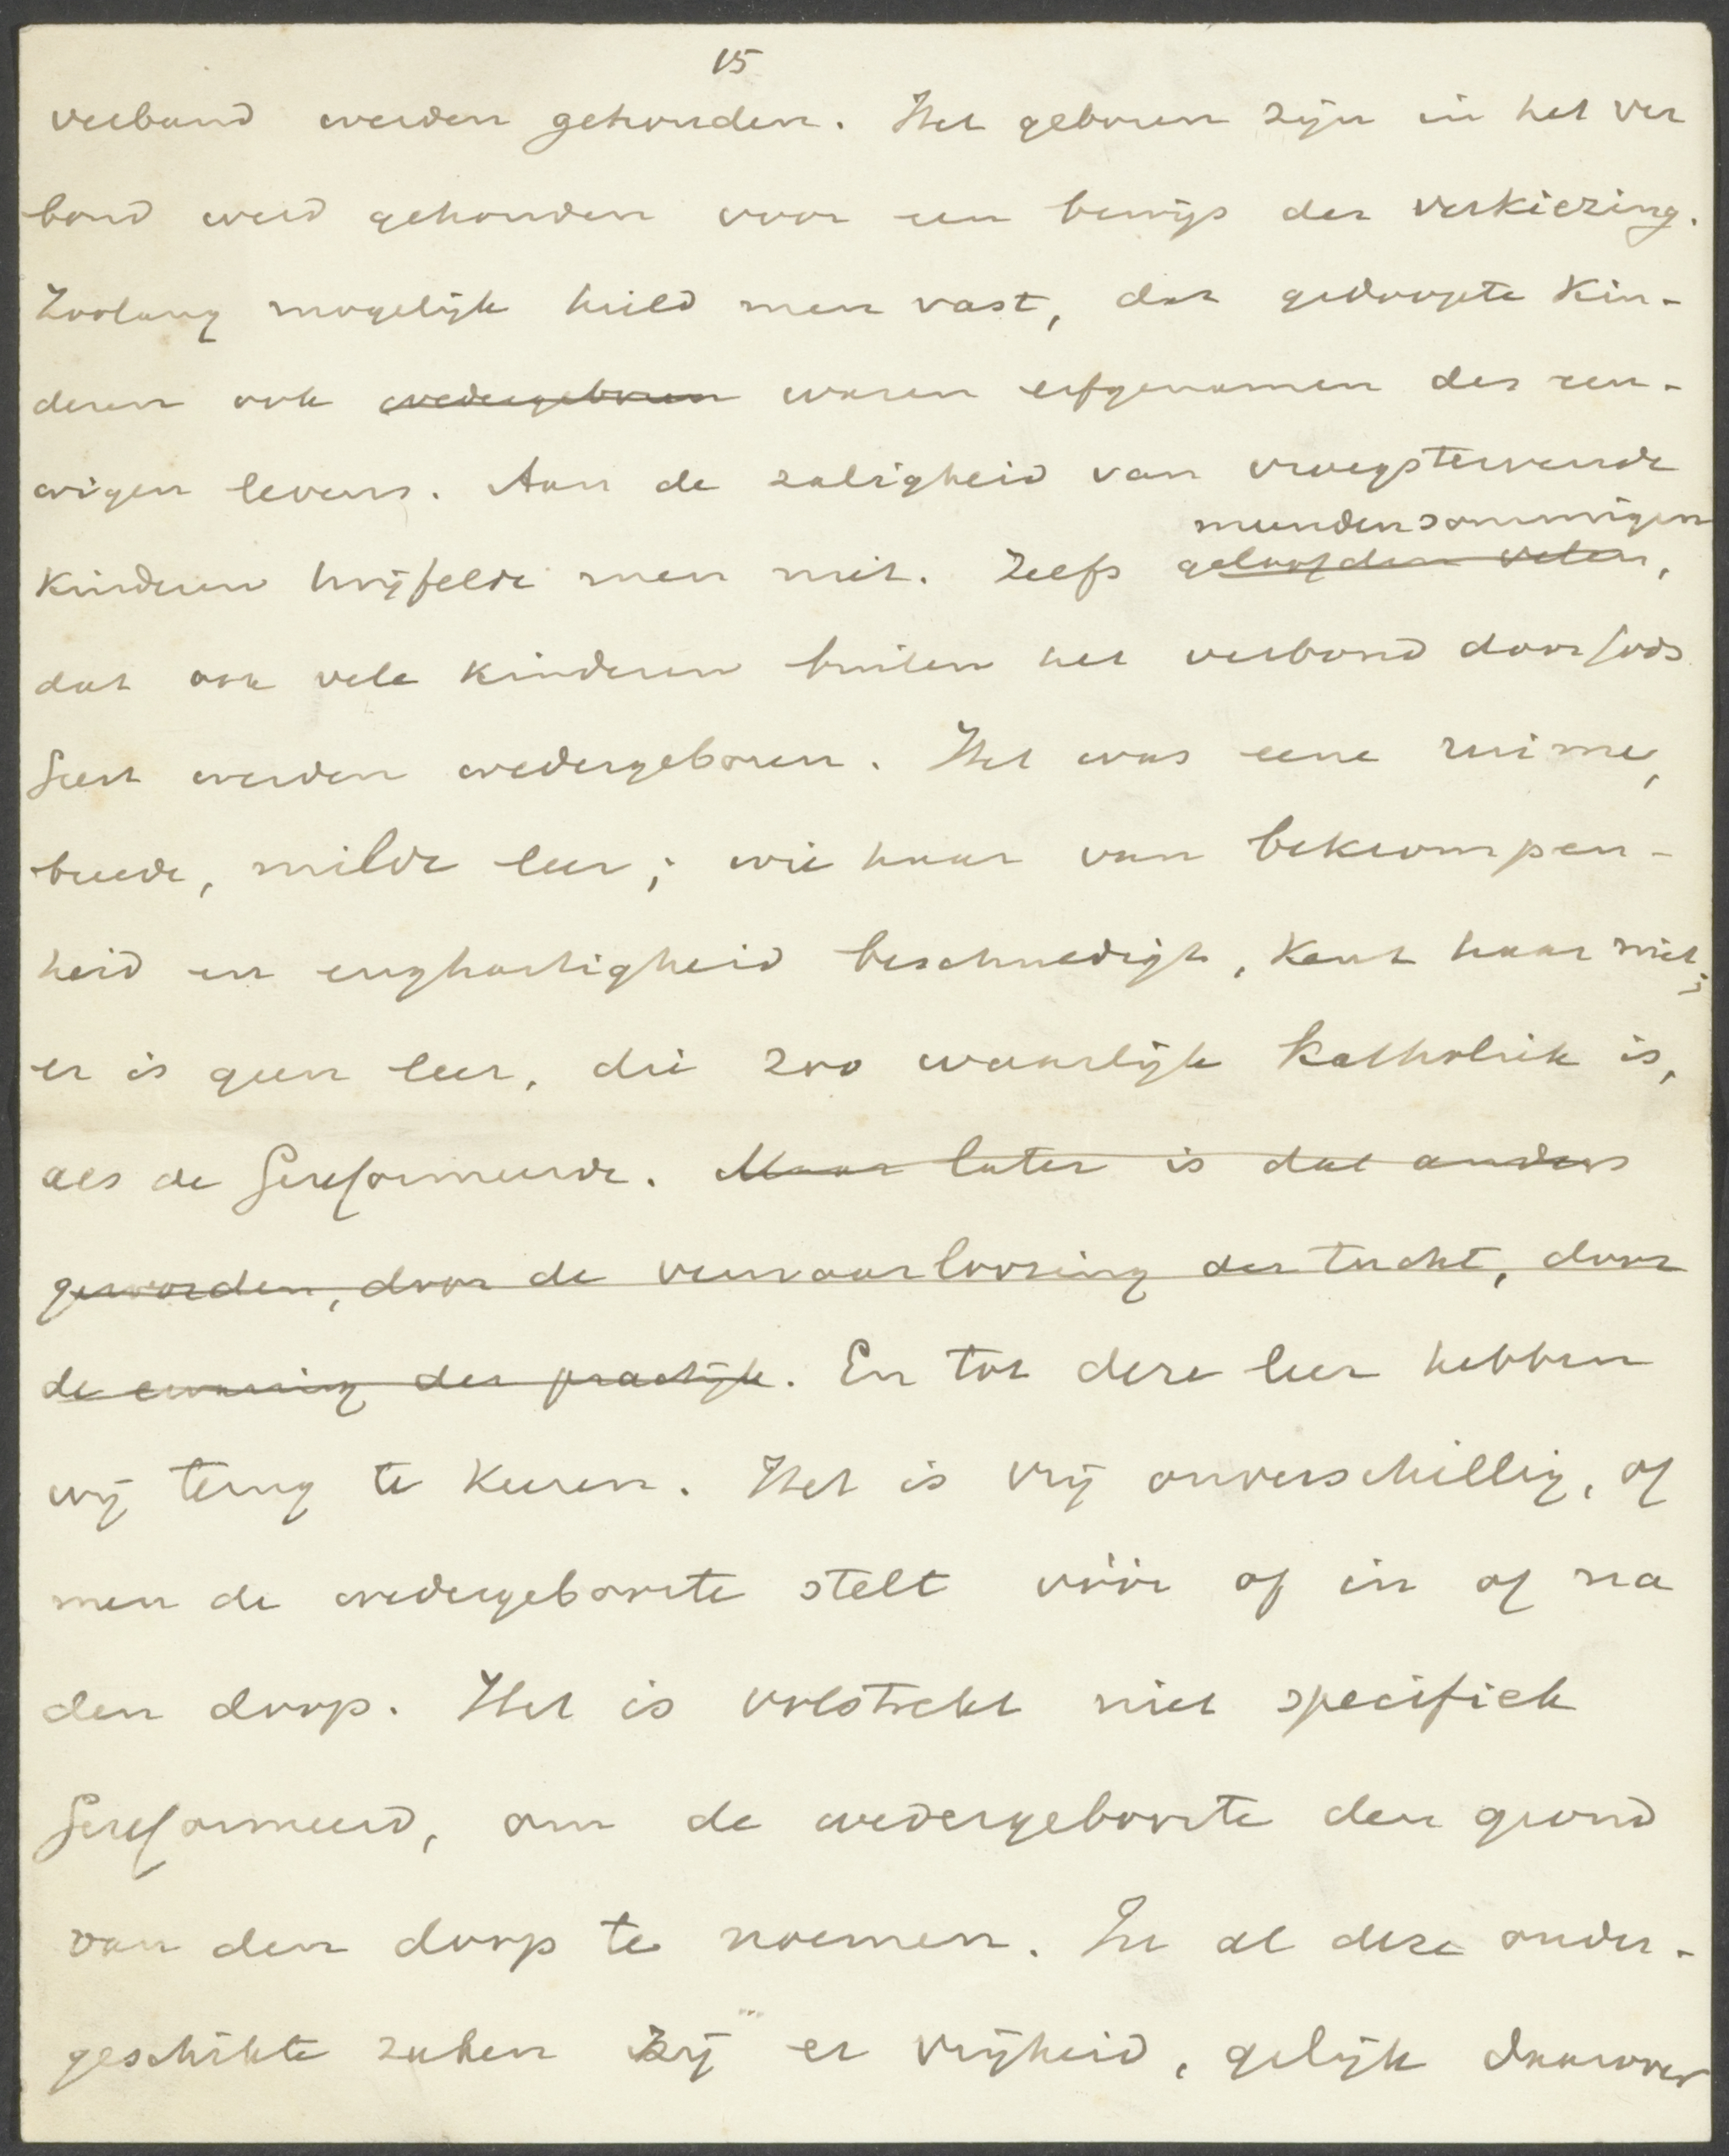 15
verband werden gehouden. Het geboren zijn in het ver
bond werd gehouden voor een bewijs der verkiezing.
Zoolang mogelijk hield men vast, dat gedoopte kin-
deren ook wedergeboren waren erfgenamen des eeu-
wigen levens. Aan de zaligheid van vroegstervende
meenden sommigen
kinderen twijfelde men niet. Zelfs geloofden velen,
dat ook vele kinderen buiten het verbond door Gods
Geest werden wedergeboren. Het was eene ruime,
breede, milde leer; wie haar van bekrompen-
heid en enghartigheid beschuldigt, kent haar niet;
er is geen leer, die zoo waarlijk katholiek is,
als de Gereformeerde. Maar later is dat anders
geworden, door de verwaarloozing der tucht, door
de ervaring der practijk. En tot deze leer hebben
wij terug te keeren. Het is vrij onverschillig, of
men de wedergeboorte stelt vóór of in of na
den doop. Het is volstrekt niet specifiek
Gereformeerd, om de wedergeboorte den grond
van den doop te noemen. In al deze onder-
geschikte zaken zij er vrijheid, gelijk daarover